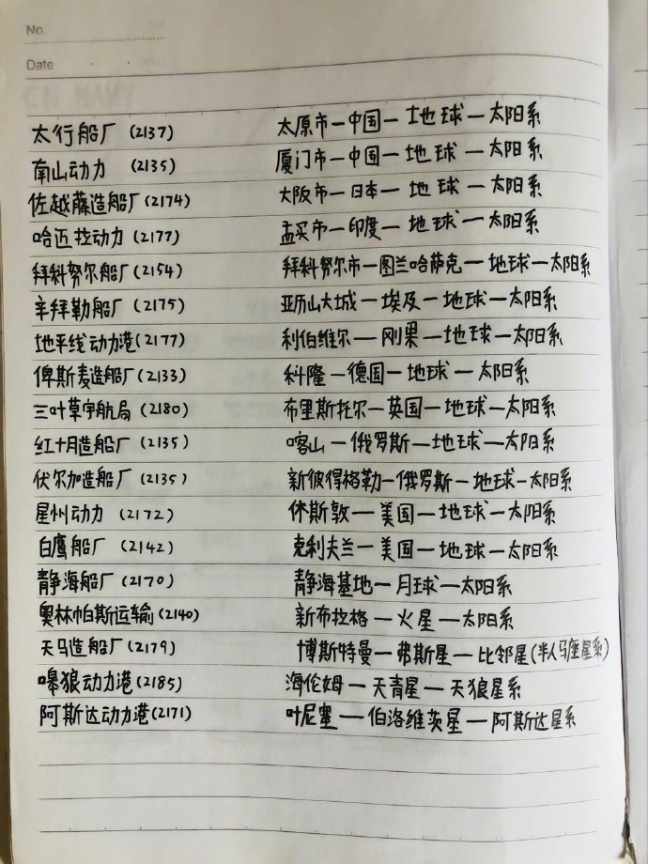 No.
Date
太行船厂 (2137) 太原市—中国—地球—太阳系
南山动力 (2135) 厦门市—中国—地球—太阳系
佐越藤造船厂(2174) 大阪市—日本—地球—太阳系
哈迈拉动力 (2177) 孟买市—印度—地球—太阳系
拜科努尔船厂(2154) 拜科努尔市—图兰哈萨克—地球—太阳系
辛拜勒船厂 (2175) 亚历山大城—埃及—地球—太阳系
地平线动力港(2177) 利伯维尔—刚果—地球—太阳系
俾斯麦造船厂(2133) 科隆—德国—地球—太阳系
三叶草宇航局 (2180) 布里斯托尔—英国—地球—太阳系
红十月造船厂 (2135) 喀山—俄罗斯—地球—太阳系
伏尔加造船厂 (2135) 新彼得格勒—俄罗斯—地球—太阳系
星州动力 (2172) 休斯敦—美国—地球—太阳系
白鹰船厂 (2142) 克利夫兰—美国—地球—太阳系
静海船厂 (2170) 静海基地—月球—太阳系
奥林帕斯运输(2140) 新布拉格—火星—太阳系
天马造船厂 (2179) 博斯特曼—弗斯星—比邻星(半人马座星系)
嗥狼动力港(2185) 海伦姆—天青星—天狼星系
阿斯达动力港(2171) 叶尼塞—伯洛维茨星—阿斯达星系